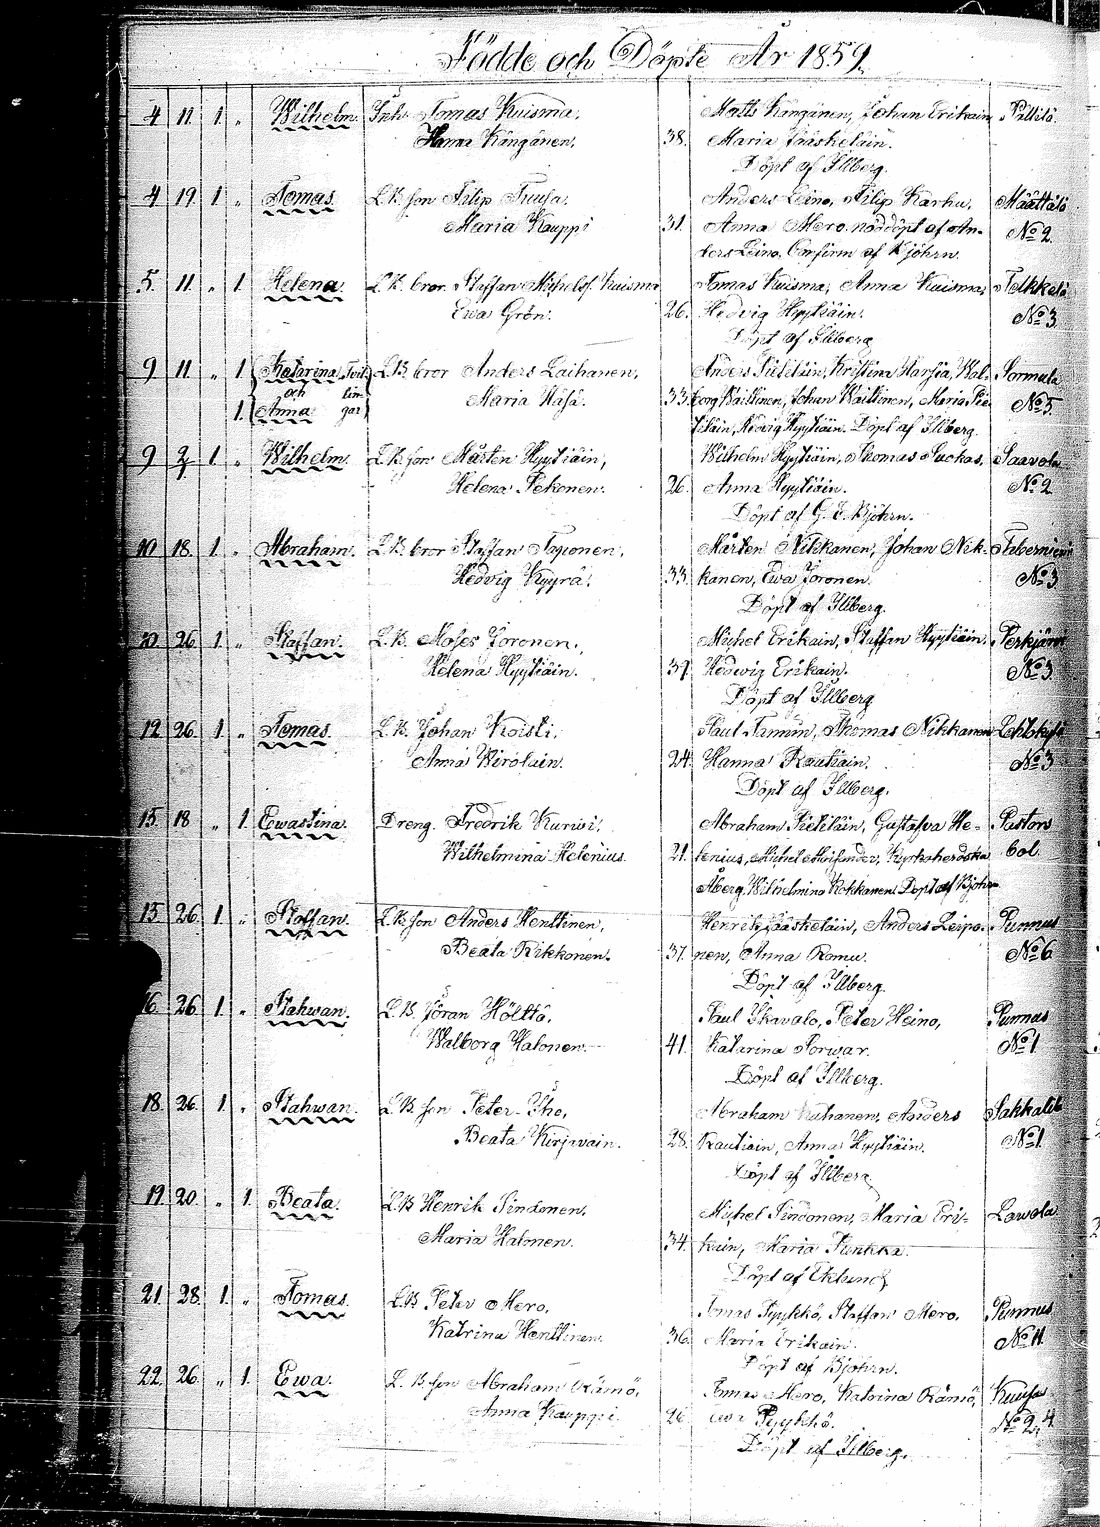 Födde och Döpte År 1859.
4 11 1 „ Wilhelm. Inh. Tomas Kuisma, Matts Kängänen, Johan Erikain, Pällilä
Hanna Kängänen. 38. Maria Jääskeläin.
Döpt af Illberg.
4 19 1 „ Tomas. L.B. son Filip Tuusa, Anders Leino, Filip Karhu, Määttälä
Maria Kauppi 31. Anna Mero. nöddöpt af An- No 2.
ders Leino. Confirm af Björhn.
5. 11. „ 1. Helena L.B. bror. Staffan Michelsf. Kuisma Tomas Kuisma, Anna Kuisma, Telkkälä
Ewa Grön. 26. Hedvig Hyytiäin. No 3.
Döpt af Illberg
9 11 „ 1 Katarina Tvil- L.B. bror Anders Laihanen, Anders Pietiläin, Kristina Hansia, Wal- Sormula
och lin- Maria 33. borg Wäittinen, Johan Wäittinen, Maria Pie- No 5.
1. Anna gar tiläin, Hedvig Hyytiäin. Döpt af Illberg.
9 1 „ Wilhelm. L.B. son Mårten Hyytiäin, Wilhelm Hyytiäin, Thomas Puckas, Saavola
Helena Pekonen. 26. Anna Hyytiäin. No 2
Döpt af G. E. Björhn.
10 18. 1 „ Abraham. L.B. bror Staffan Mårten Nikkanen, Johan Nik-
Hedvig Kyyrä. 33. kanen, Ewa Joronen. No 3
Döpt af Illberg.
10. 26. 1 „ Staffan. L.B. Moses Joronen, Michel Erikain, Staffan Hyytiäin, Perkjärvi
Helena Hyytiäin. 37 Hedwig Erikain. No 3.
Döpt af Illberg
12 26. 1 „ Tomas. L.B. Johan Koisti, Paul Tamun, Thomas Nikkanen Lehtokylä
Anna Wirolain. 24. Hanna Rautiain. No 3
Döpt af Illberg.
15. 18 „ 1. Ewastina. Dreng. Fredrik Kurwi, Abraham Pietiläin, Gustafva He- Pastors
Wilhelmina Helenius. 21. lenius, Michel Kyrkoherdska bol.
Åberg, Wilhelmina Kokkanen. Döpt af Björhn
15. 26. 1 „ Staffan. L.B. son Anders Henttinen, Henrik Jääskeläin, Anders Leipo- Punnus
Beata Rikkonen. 37. nen, Anna Romu. No 6
Döpt af Illberg.
16. 26. 1 „ Stahwan. L.B. Jöran Hölttö, Paul Ikavalo, Peter Heino, Punnus
Walborg Halonen. 41. Katarina Torwar. No 1
Döpt af Illberg.
18. 26. 1. „ Stahwan. L.B. son Peter Iho, Abraham Kuhanen, Anders Sakkalila
Beata Kirjavain. 28. Rautiain, Anna Hyytiäin. No 1
Döpt af Illberg
19. 20. „ 1. Beata. L.B. Henrik Sindonen, Michel Sindonen, Maria Eri- Lawola
Maria Halonen. 34. kain, Maria Punkka.
Döpt af Eklund
21. 28. 1. „ Tomas. L.B. Peter Mero, Tomas Pyykkö, Staffan Mero, Punnus
Katrina Henttinen. 36. Maria Erikain. No 11.
Döpt af Björhn.
22. 26. „ 1. Ewa. L.B. son Abraham Rämö, Tomas Mero, Katrina Rämö, Kuusa
Anna Kauppi. 26 Ewa Pyykkö. No 2, 4
Döpt af Illberg.